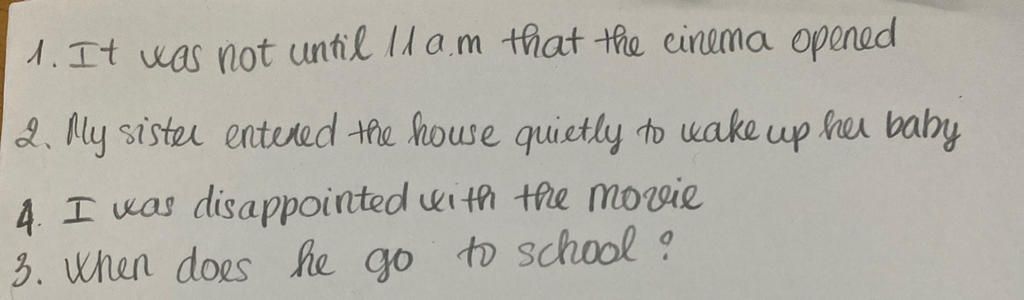 1. It was not until 11 a.m that the cinema opened
2. My sister entered the house quietly to wake up her baby
4. I was disappointed with the movie
3. When does he go to school?